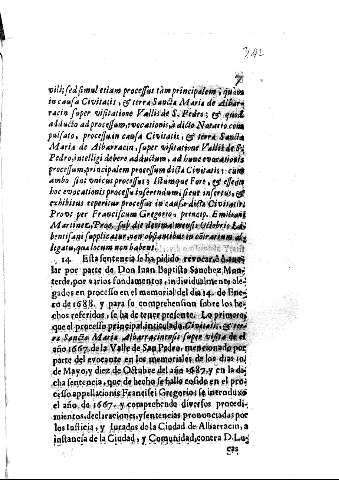 342
7
vili; sed simul etiam processus tàm principalem, quàm
in causa Civitatis, & terra Sancta Maria de Albar-
racin super visitatione Vallis de S. Pedro; & quod
adducto ad processum, vocationis, à dicto Notario com
pulsato, processu in causa Civitatis, & terra Sancta
Maria de Albarracin, super visitatione Vallis de S.
Pedro, intelligi debere adductum, ad hunc evocationis
processum, principalem processum dicta Civitatis: cum
ambo sint vnicus processus; Istumque Fore, & esse in
hoc evocationis processu insertendum; sicut insertus, &
exhibitus reperitur processus in causa dicta Civitatis.
Prout per Franciscum Gregorio; princip. Emiliani
Martinez, Proc. sub die decima mensis Octobris
supplicatur, non obstantibus in contrarium al-
legatis, qua locum non habent.
14. Esta sentencia se ha pidido revocar, ò anu-
lar por parte de Don Iuan Baptista Sanchez Mon-
terde, por varios fundamentos, individualmente ale-
gados en processo en el memorial del dia 14. de Ene-
ro de 1688. y para su comprehension sobre los he-
chos referidos, se ha de tener presente. Lo primero,
que el processo principal intitulado Civitatis, & ter-
re Sancta Maria Albarracinensis super visita de el
año 1667. de la Valle de San Pedro, mencionado por
parte del evocante en los memoriales de los dias 10.
de Mayo, y diez de Octubre del año 1687. y en la di-
cha sentencia, que de hecho se hallò cosido en el pro-
cesso appellationis Francisci Gregorio se introduxo
el año de 1667. y comprehende diversos procedi-
mientos, declaraciones, y sentencias pronunciadas por
los Iusticia, y Iurados de la Ciudad de Albarracin, à
instancia de la Ciudad, y Comunidad, contra D. Lu-
cas